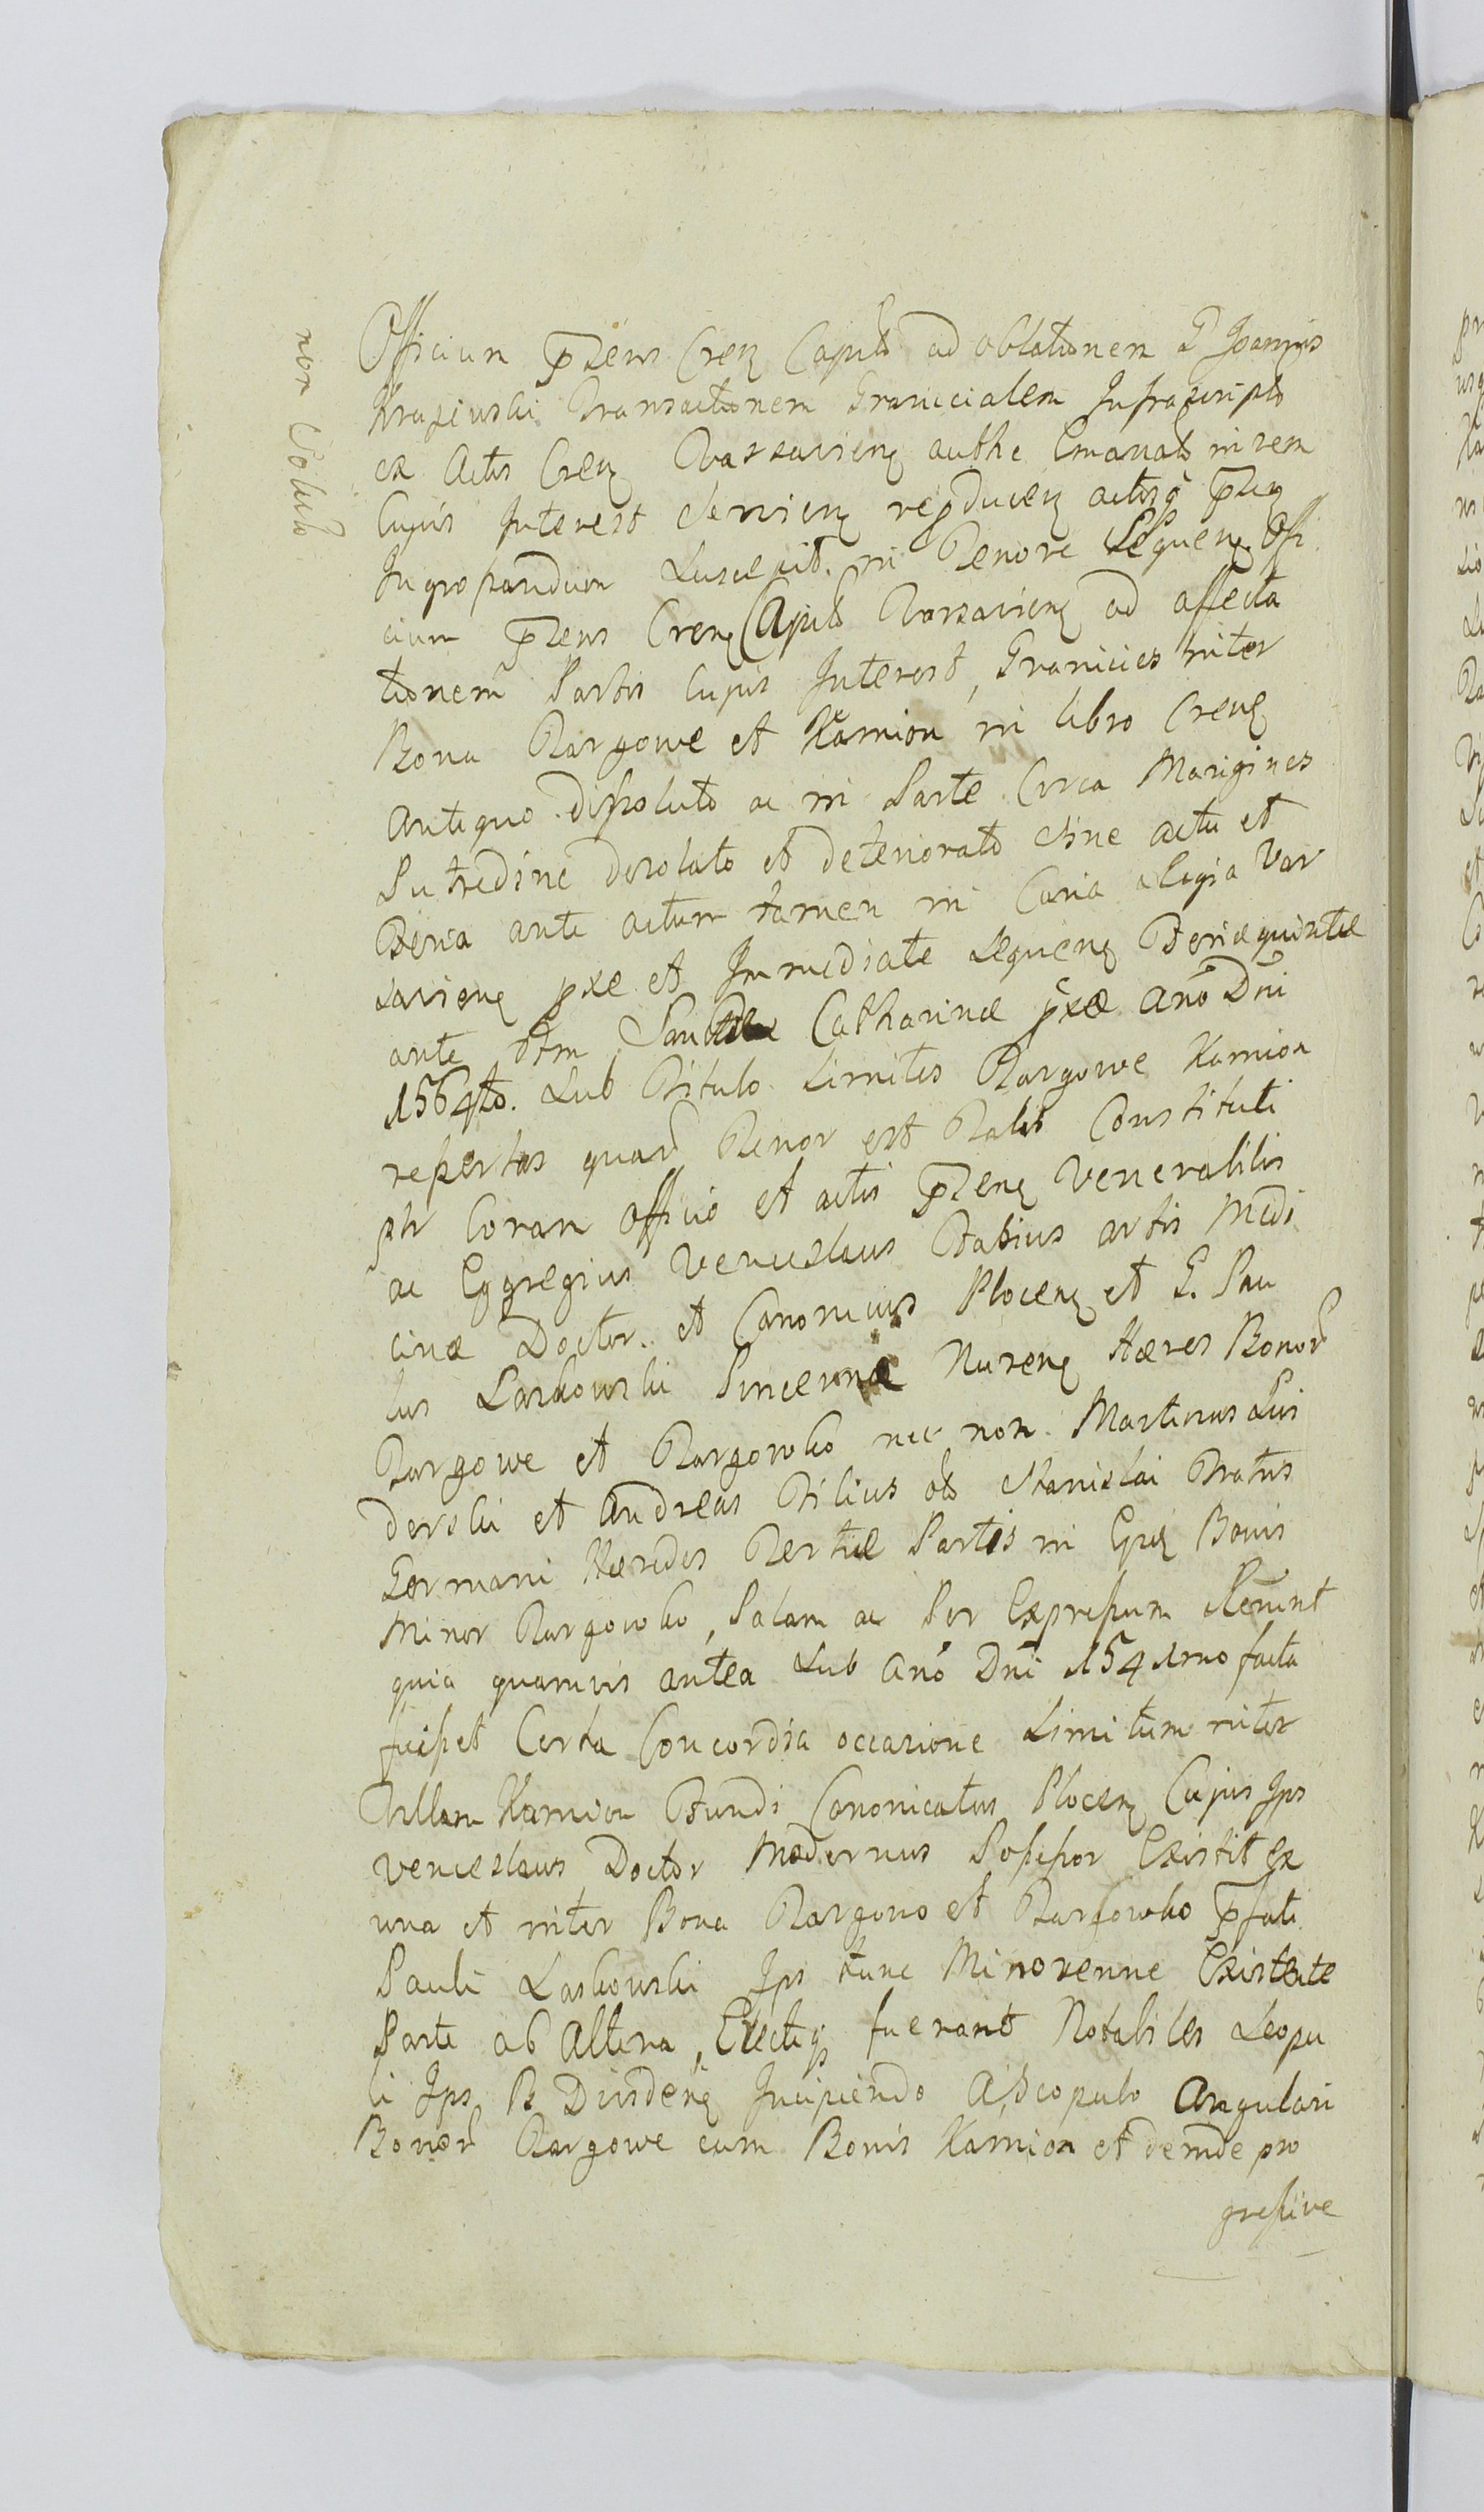 non Solut
Officium p̄zens Cren Capitl ad oblationem G Joannis
Krajewski Transactionem Graniccialem Infrascript
ex Actis Cren Varsavien authe Emanat in rem
Cujus Interest Servien reproducen actisq p̄zen
Ingrossandum Suscepit in Tenore Sequen Offi
cium p̄zens Cren Capitl Varsavien ad affecta
tionem Partis Cujus Interest, Granicies inter
Bona Targowe et Kamion in libro Cren
Antiquo dissoluto ac in Parte Circa Margines
Putredine desolato et deteriorato Sine actu et
Feria ante actum tamen in Curia Regia Var
savien pxe et Immediate Sequen Feriae quintae
ante Ftm Sanctae Catharinae pxae Año Dñi
1564to. Sub Titulo Limites Targowe Kamion
repertas quar Tenor est Talis Constituti
ptr Coram Officio et actis p̄zen Venerabilis
ac Eggregius Venceslaus Fabius artis Medi
cinae Doctor et Canonicus Plocen et G. Pau
lus Laskowski Pincerna Nuren Haeres Bonor
Targowe et Targowko nec non Martinus Swi
derski et Andreas Filius ol Stanislai Fratris
Germani Haeredes Tertiae Partis in Ejus Bonis
Minor Targowko, Palam ac Per Expressum Rerunt
quia quamvis antea Sub Año Dñi 1541mo facta
fuisset Certa Concordia occasione Limitum inter
Villam Kamion Fundi Canonicatus Plocen Cujus Ips
Venceslaus Doctor Modernus Possessor Existit ex
una et inter Bona Targowo et Targowko p̄fati
Pauli Laskowski Ips tunc Minorenne Existente
Parte ab Altera, Erectiq fuerant Notabiles Scopu
li Ips B Dividen Incipiendo A Scopulo Angulari
Bonor Targowe cum Bonis Kamion et deinde pro
gressive